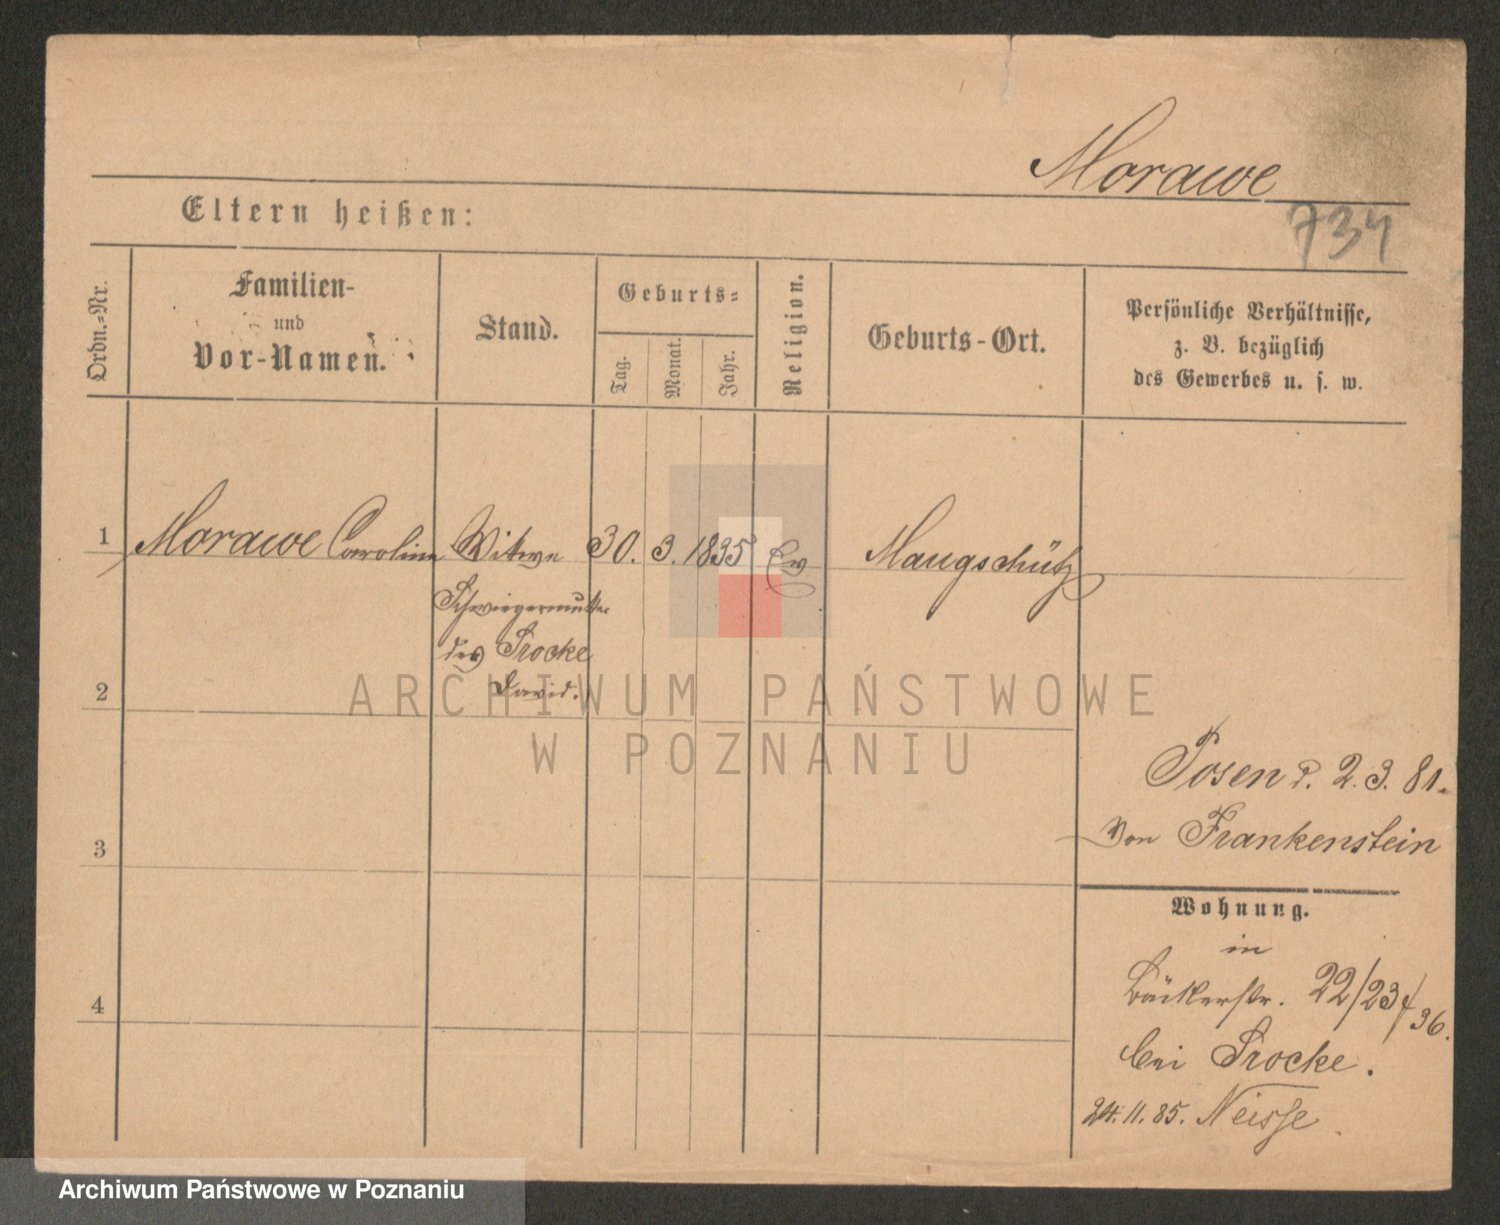 Morawe
734
Eltern heißen:
Ordn.-Nr.
Familien-
und
Vor-Namen.
Stand.
Geburts-
Tag.
Monat.
Jahr.
Religion.
Geburts-Ort.
Persönliche Verhältnisse,
z. B. bezüglich
des Gewerbes u. s. w.
1 Morawe Caroline Witwe 30. 3. 1835 Ev Maugschütz
Schwiegermutter
des Procke
David.
2
ARCHIWUM PAŃSTWOWE
W POZNANIU
Posen P. 2. 3. 81.
von Frankenstein
3
Wohnung.
in
Bäckerstr. 22/23
36.
4
bei Procke.
24. 11. 85. Neisse
Archiwum Państwowe w Poznaniu